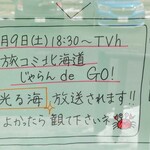 月9日(土)18:30〜TVh
旅コミ北海道
じゃらん de GO!
光る海 放送されます!!
よかったら 観て下さいネ